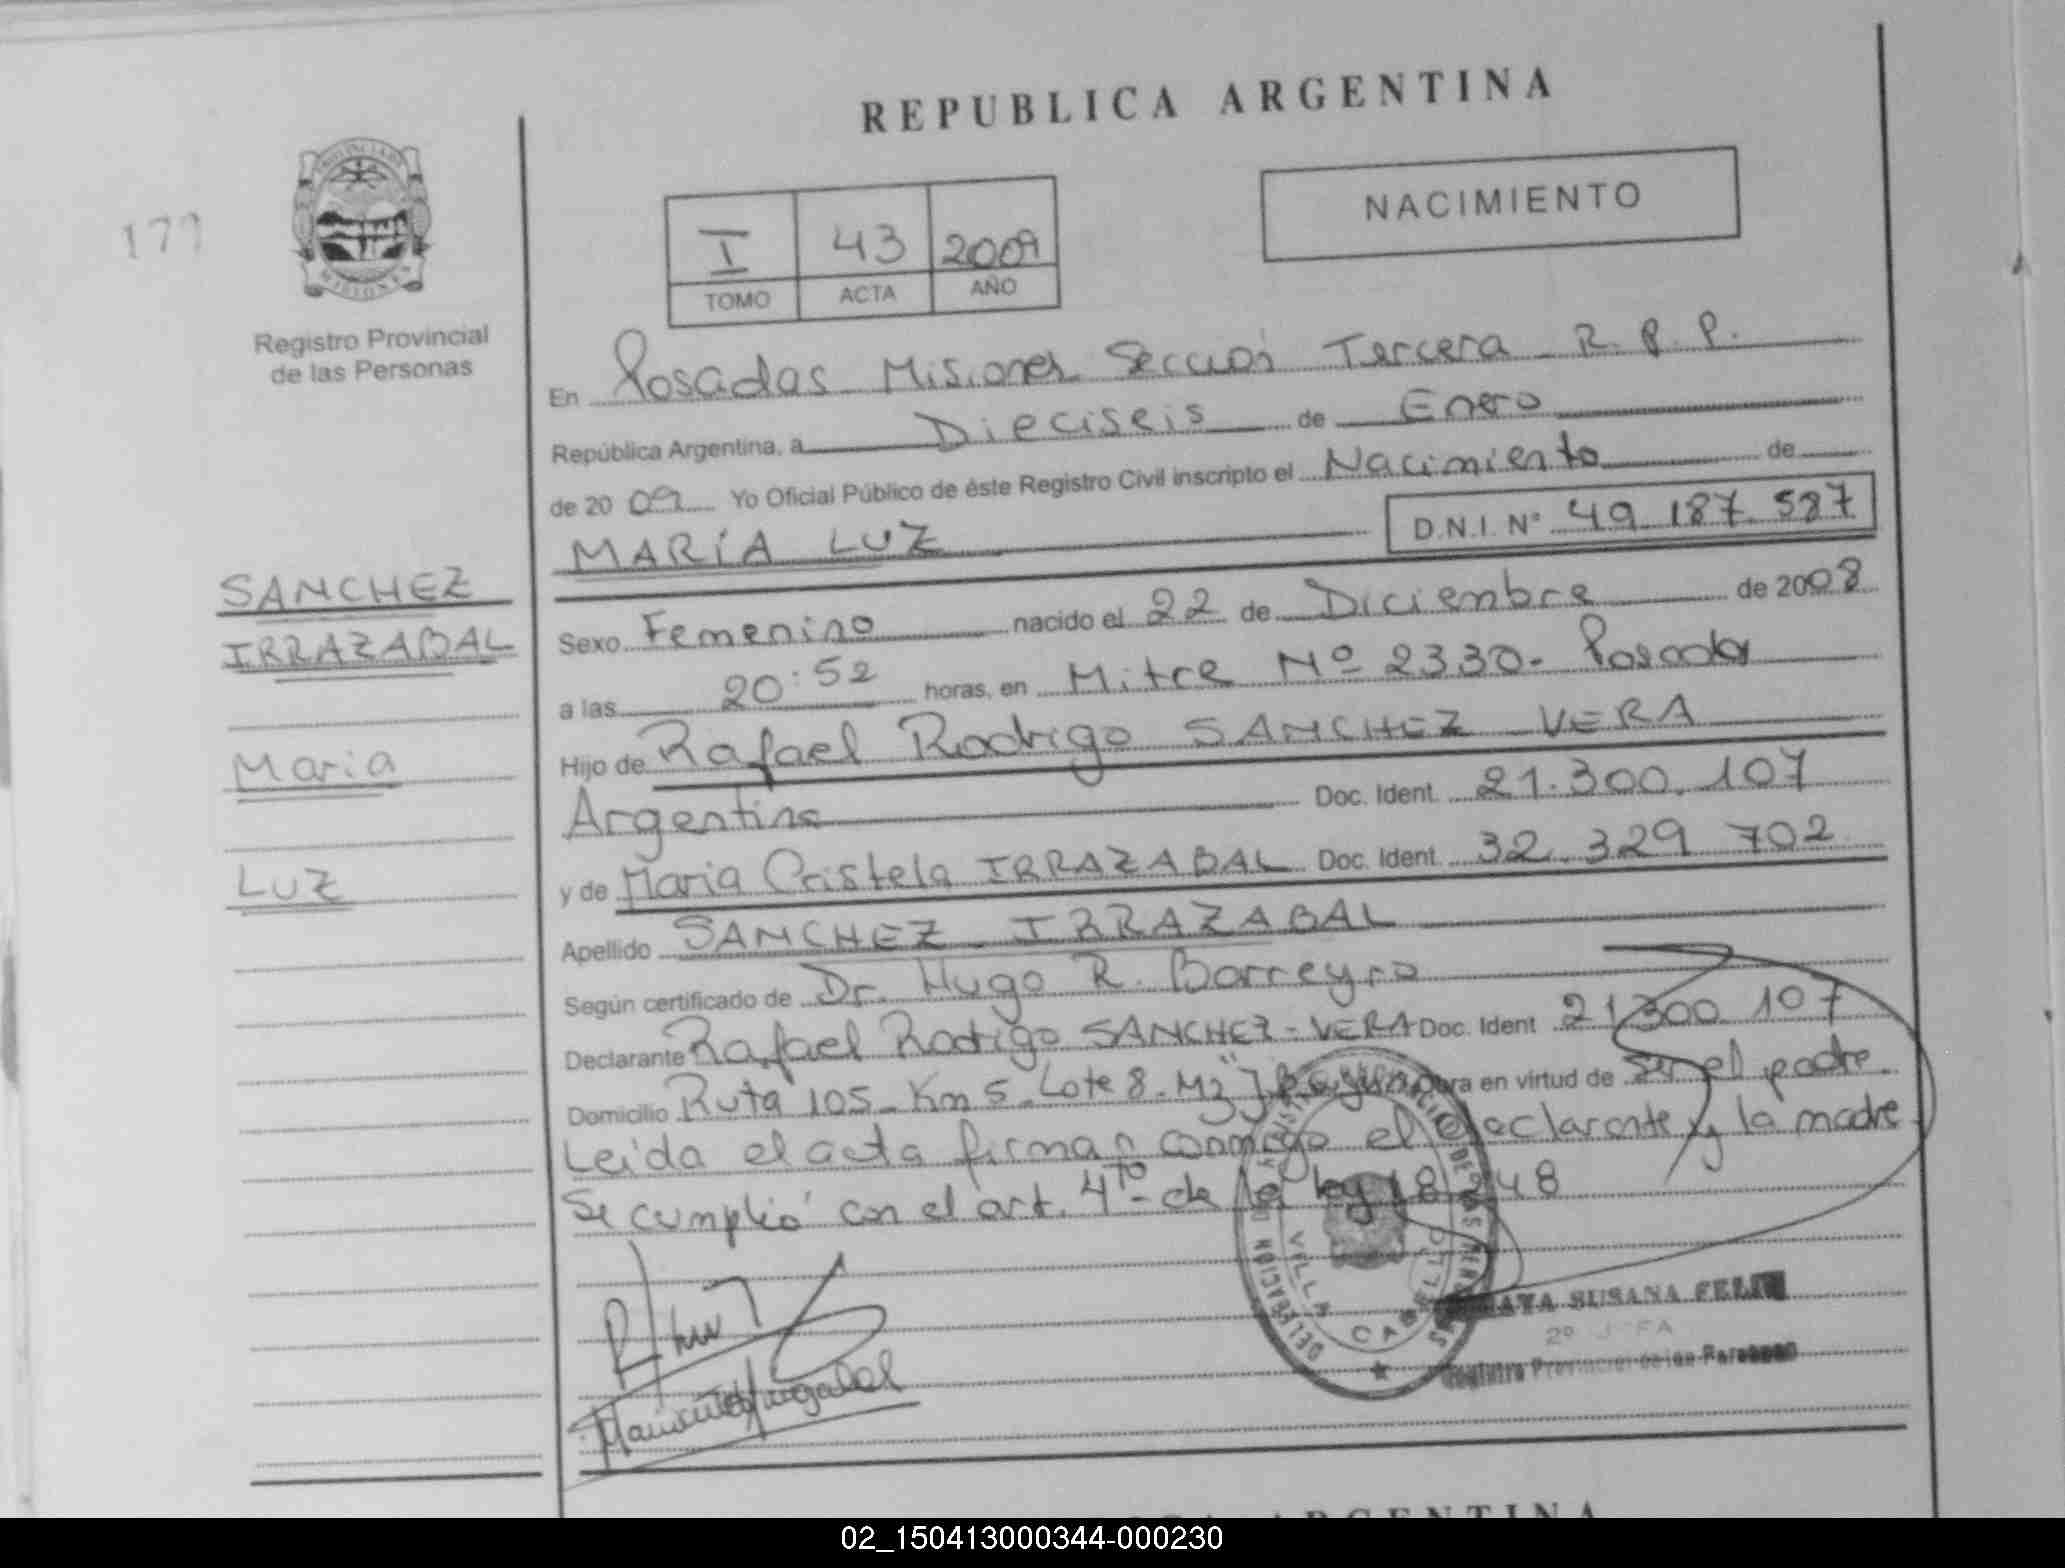 REPUBLICA ARGENTINA
177
PROVINCIA DE
MISIONES
Registro Provincial
de las Personas
NACIMIENTO
I 43 2009
TOMO ACTA AÑO
En Posadas Misiones Sección Tercera R. P. P.
República Argentina, a Dieciseis de Enero
de 20 09 Yo Oficial Público de éste Registro Civil inscripto el Nacimiento de
MARÍA LUZ D.N.I. N° 49.187.587
SANCHEZ
IRRAZABAL
Maria
LUZ
Sexo Femenino nacido el 22 de Diciembre de 2008
a las 20:52 horas, en Mitre Nº 2330- Posadas
Hijo de Rafael Rodrigo SANCHEZ - VERA
Argentina Doc. Ident. 21.300.107
y de Maria Cristela IRRAZABAL Doc. Ident. 32.329.702
Apellido SANCHEZ - IRRAZABAL
Según certificado de Dr. Hugo R. Barreyro
Declarante Rafael Rodrigo SANCHEZ - VERA Doc. Ident 21.300.107
Domicilio Ruta 105 - Km 5 - Lote 8 - Mz "J" en virtud de ser el padre.
Leida el acta firman conmigo el declarante y la madre
Se cumplió con el art. 4to- de la ley 18.248
VILLA CABELLO
SUSANA
2º JEFA
Registro Provincial de las Personas
ARGENTINA
02_150413000344-000230